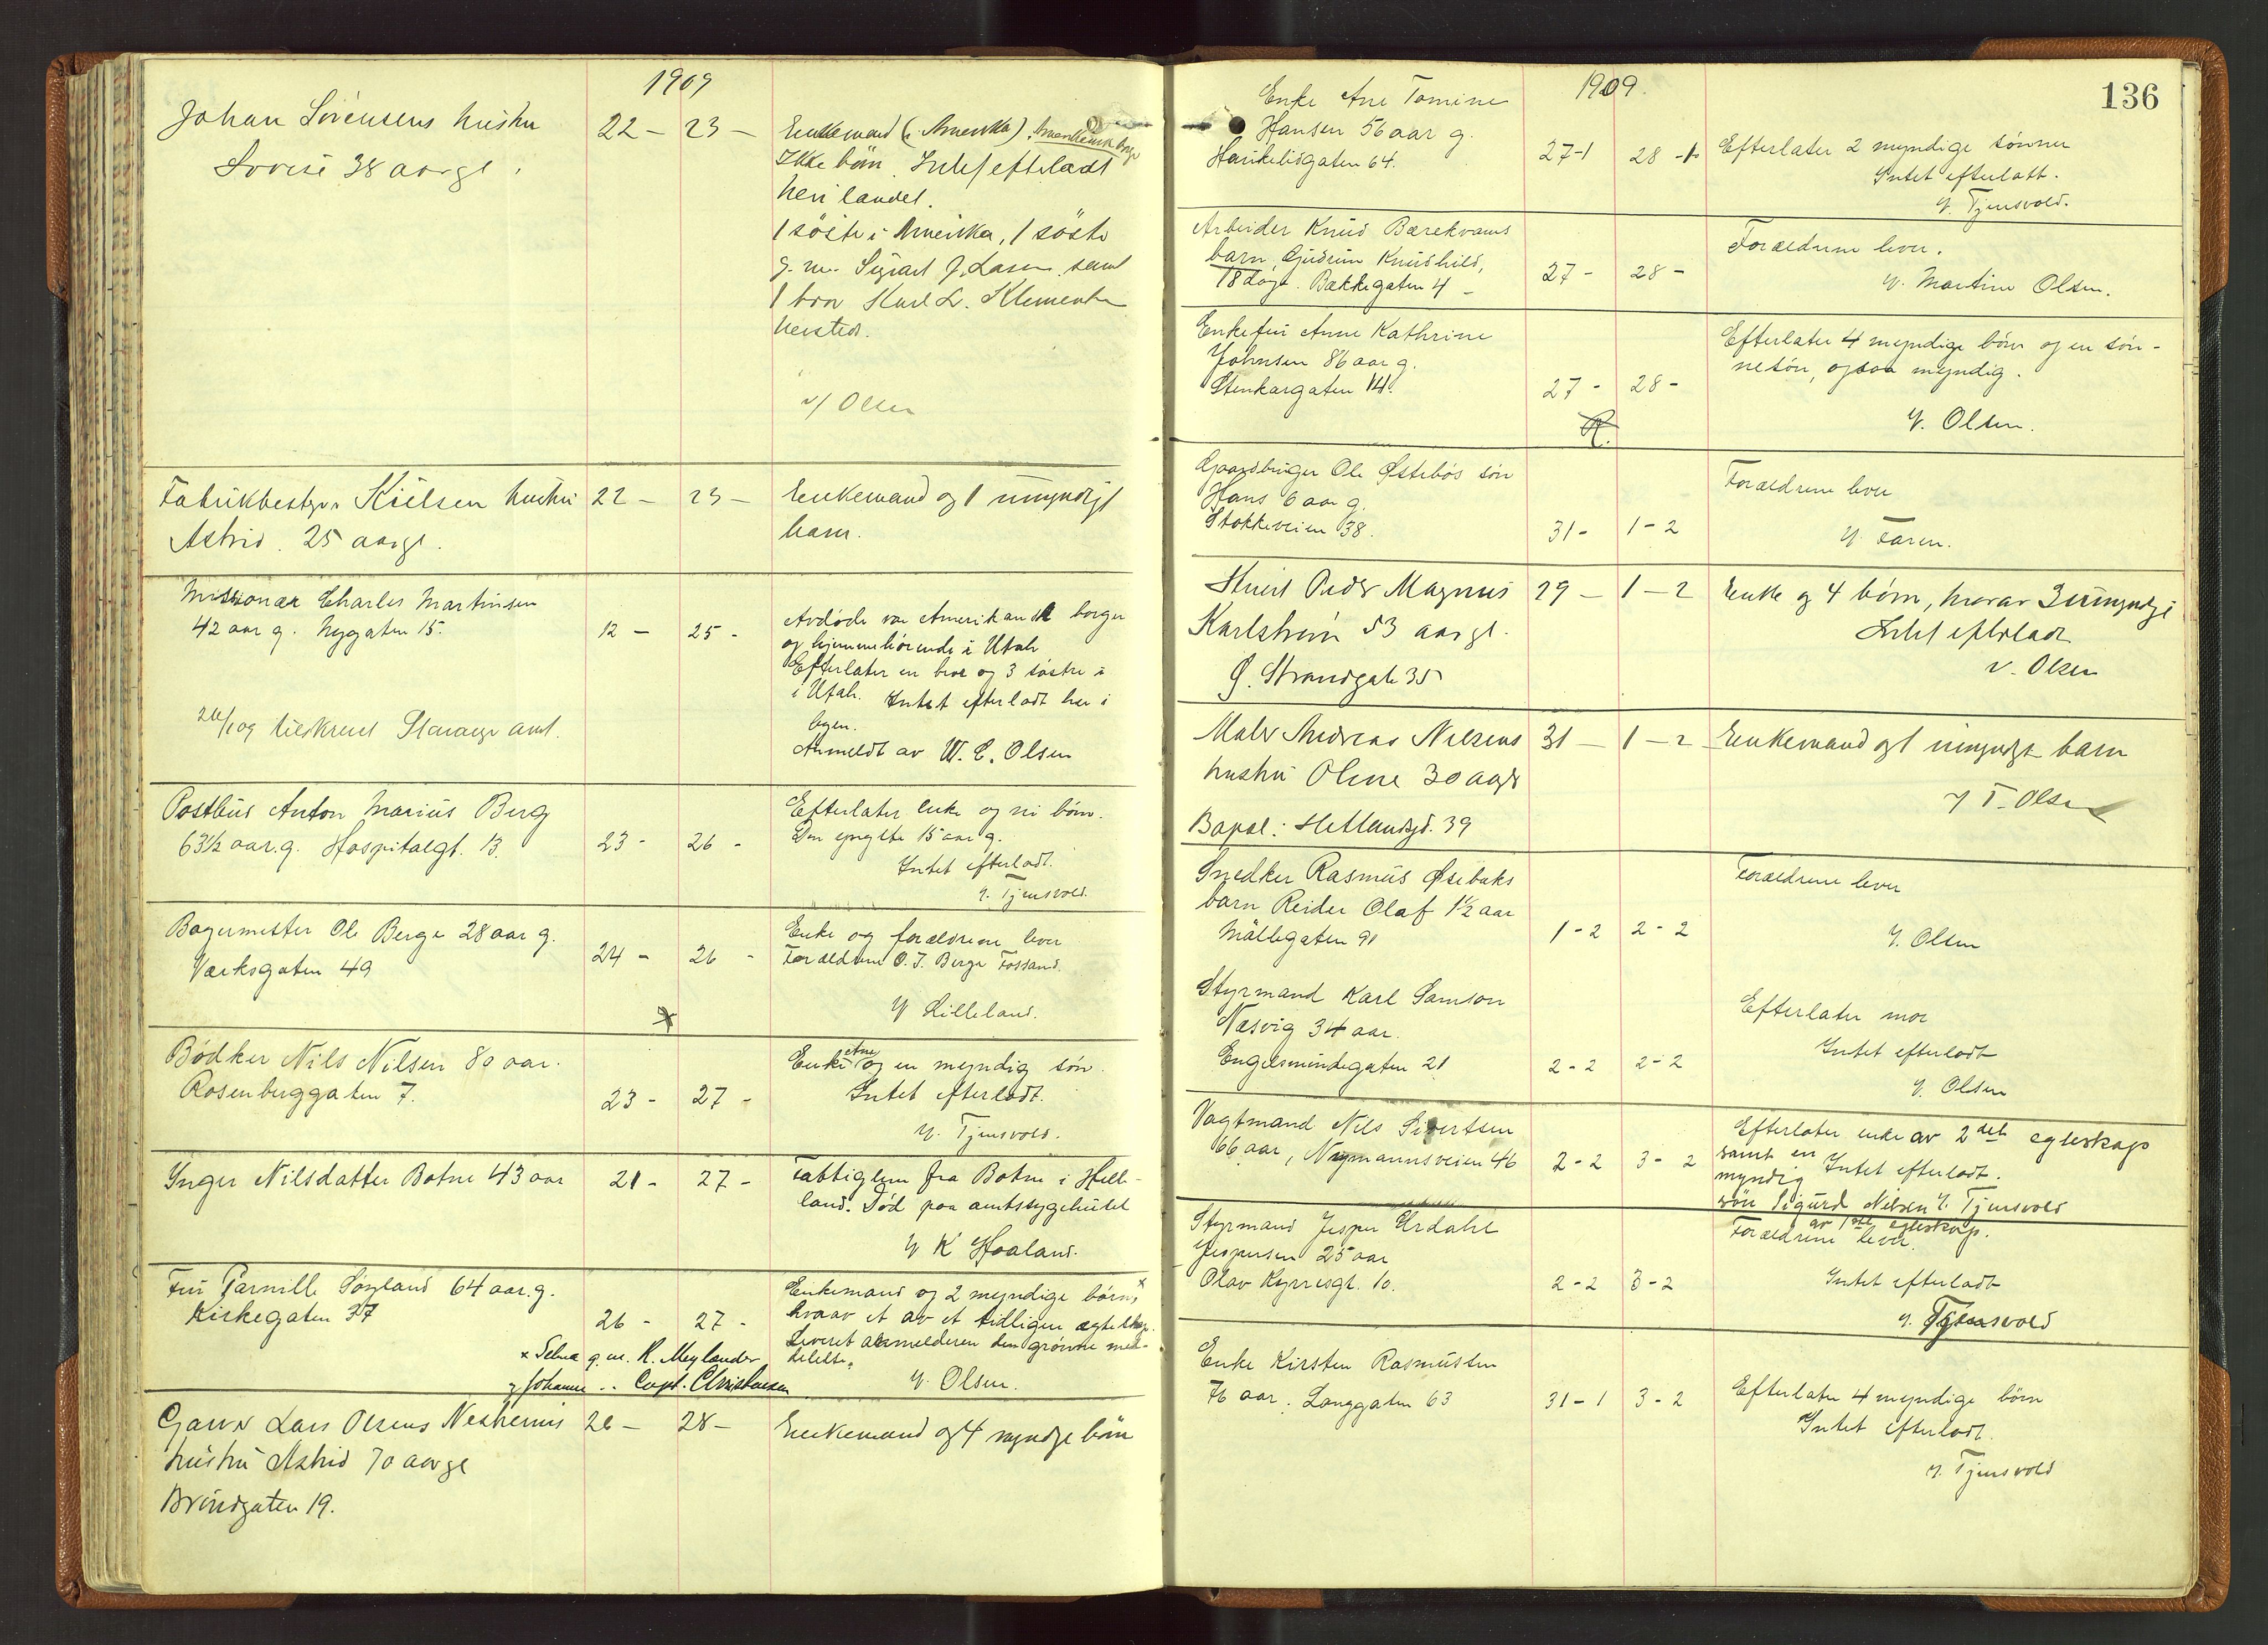 1909
Johan Sørensens hustru
Lovise 38 aar gl.
22 - 23 -
Enkemand (i Amerika). Amerikansk borger
Ikke børn. Intet efterladt
her i landet.
1 søster i Amerika, 1 søster
g. m. Sigvart J. Larsen, samt
1 bror Karl L. Klementsen
hersteds.
v/ Olsen
Fabrikbestyr. Kielsens hustru
Astrid. 25 aar gl.
22 - 23 -
Enkemand og 1 umyndigt
barn.
Missionær Charles Martinsen
42 aar g. Nygaten 15.
12 - 25 -
26/1 09 tilskrevet Stavanger amt.
Avdøde var Amerikansk borger
og hjemmehørende i Utah
Efterlater en bror og 3 søstre i
i Utah. Intet efterladt her i
byen.
Anmeldt av W. C. Olsen
Postbud Anton Marius Berg
63½ aar. g. Hospitalgt. 13.
23 - 26 -
Efterlater enke og ni børn.
Den yngste 15 aar g.
Intet efterladt.
v. Tjensvold.
Bagermester Ole Berge 28 aar g.
Værksgaten 49
24 - 26 -
Enke og forældrene lever
Forældrene O. T. Berge Fossand.
v/ Lilleland.
Bødker Nils Nilsen 80 aar.
Rosenberggaten 7.
23 - 27 -
Enke Ane og en myndig søn.
Intet efterladt.
v. Tjensvold.
Inger Nilsdatter Botne 43 aar
21 - 27 -
Fattiglem fra Botne i Helle-
land. Død paa amtssygehuset
v/ K Haaland.
Fru Pernille Søyland 64 aar. g.
Kirkegaten 37
26 - 27 -
Enkemand og 2 myndige børn, x
hvorav et av et tidligere ægteskap.
Leveret anmelderen den grønne med-
delelse.
v. Olsen.
x Selma g. m. R. Meylander
og Johanne .. Capt. Christensen
Garver Lars Olsens Nesheims
hustru Astrid 70 aar gl
Brøndgaten 19.
26 - 28 -
Enkemand og 4 myndige børn
1909.
136
Enke Ane Tomine
Hansen 56 aar g.
Haukeligaten 64.
27-1 28-1
Efterlater 2 myndige sønner
Intet efterlatt.
v. Tjensvold.
Arbeider Knud Bærekvams
barn, Gudrun Knudhild,
18 dage. Bakkegaten 4 -
27 - 28 -
Forældrene lever.
v. Martine Olsen.
Enkefru Anne Kathrine
Johnsen 86 aar g.
Stenkargaten 14.
27 - 28 -
Efterlater 4 myndige børn og en søn-
nesøn, ogsaa myndig.
v. Olsen.
Gaardbruger Ole Østebøs søn
Hans 6 aar g.
Stokkeveien 38.
31 - 1 - 2
Forældrene lever
v. Faren.
Peder Magnus
Karlstrøm 53 aar gl.
Ø. Strandgate 35
29 - 1 - 2
Enke og 4 børn, hvorav 3 umyndige
Intet efterladt
v. Olsen
Maler Andreas Nilsens
hustru Oline 30 aar gl
Bopæl: Hetlandsgd. 39
31 - 1 - 2
Enkemand og 1 umyndigt barn
v/ T. Olsen
Snedker Rasmus Øsebaks
barn Reider Olaf 1½ aar
Møllegaten 91
1 - 2 2 - 2
Forældrene lever
v. Olsen
Styrmand Karl Samson
Næsvig 34 aar.
Engelsmindegaten 21
2 - 2 2 - 2
Efterlater mor
Intet efterladt
v. Olsen
Vagtmand Nils Sivertsen
66 aar, Nymannsveien 46
2 - 2 3 - 2
Efterlater enke av 2det egteskap
samt en
myndig Intet efterladt.
søn Sigurd Nilsen v. Tjensvold
av 1ste egteskap.
Styrmand Jesper Urdahl
Jespersen 25 aar
Olav Kyrresgt. 10.
2 - 2 3 - 2
Forældrene lever.
Intet efterladt
v. Tjensvold
Enke Kirsten Rasmussen
76 aar. Langgaten 63
31 - 1 3 - 2
Efterlater 4 myndige børn
Intet efterladt.
v. Tjensvold